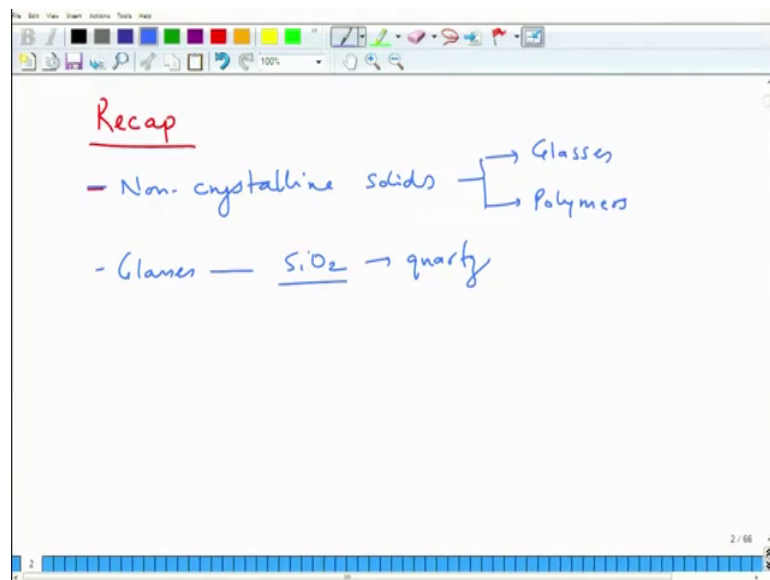 File Edit View Insert Actions Tools Help
B I
100%
Recap
- Non-crystalline solids → Glasses
→ Polymers
- Glasses — SiO2 → quartz
2 / 66
2